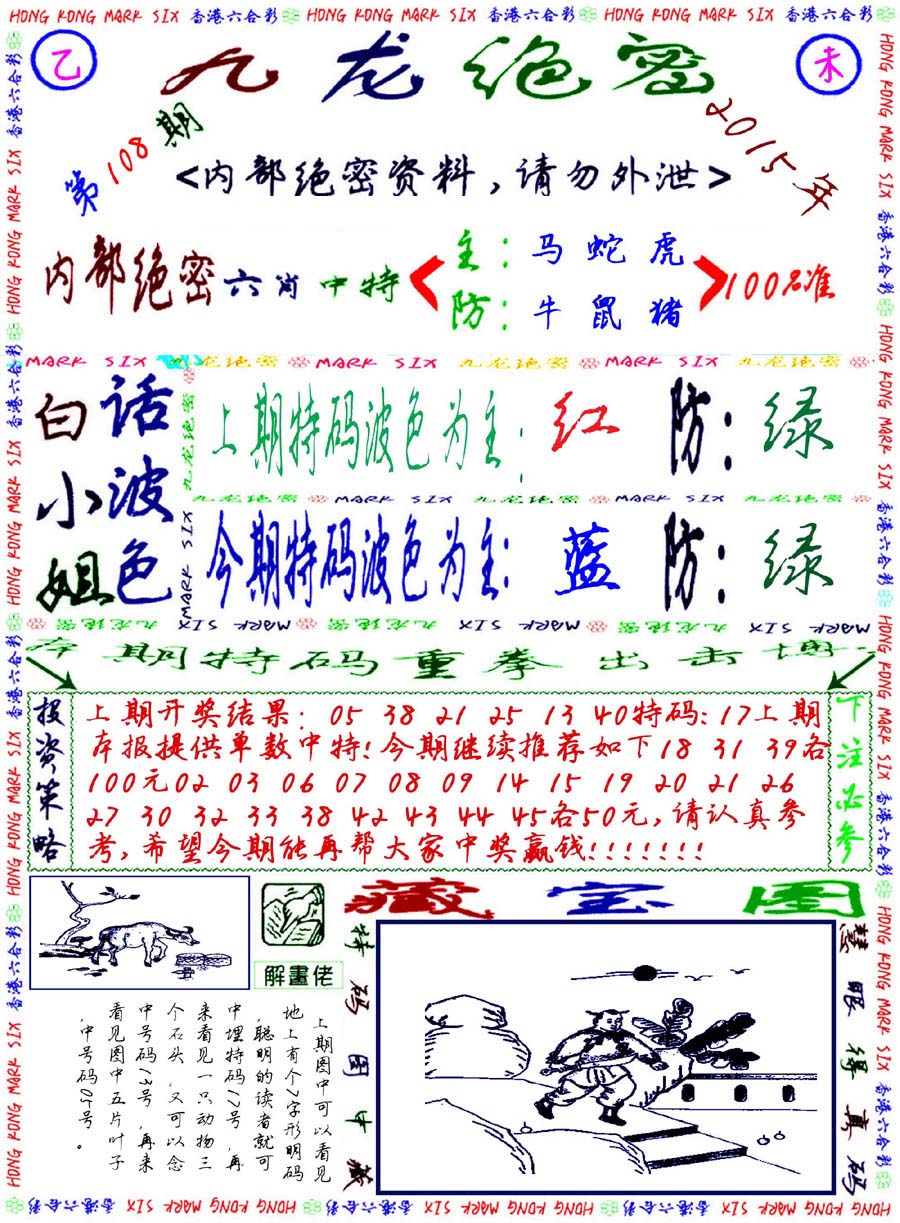 HONG KONG MARK SIX 香港六合彩 HONG KONG MARK SIX 香港六合彩 HONG KONG MARK SIX 香港六合彩
乙
九龙绝密
未
第108期
2015年
<内部绝密资料，请勿外泄>
内部绝密六肖中特
主：马 蛇 虎
防：牛 鼠 猪
100%准
MARK SIX 九龙绝密 MARK SIX 九龙绝密 MARK SIX 九龙绝密
白话
小波
姐色
上期特码波色为主：红 防：绿
九龙绝密 MARK SIX 九龙绝密 MARK SIX 九龙绝密
今期特码波色为主：蓝 防：绿
九龙绝密 MARK SIX 九龙绝密 MARK SIX 九龙绝密 MARK SIX
本期特码重拳出击博
投资策略
上期开奖结果：05 38 21 25 13 40特码：17上期
本报提供单数中特！今期继续推荐如下18 31 39各
100元02 03 06 07 08 09 14 15 19 20 21 26
27 30 32 33 38 42 43 44 45各50元，请认真参
考，希望今期能再帮大家中奖赢钱！！！！！！！
下注必参
藏宝图
解畫佬
特码图中藏
慧眼得真码
上期图中可以看见
地上有个7字形明码
，聪明的读者就可
中埋特码17号，再
来看见一只动物三
个石头，又可以念
中号码13号，再来
看见图中五片叶子
，中号码05号。
HONG KONG MARK SIX 香港六合彩 HONG KONG MARK SIX 香港六合彩 HONG KONG MARK SIX 香港六合彩